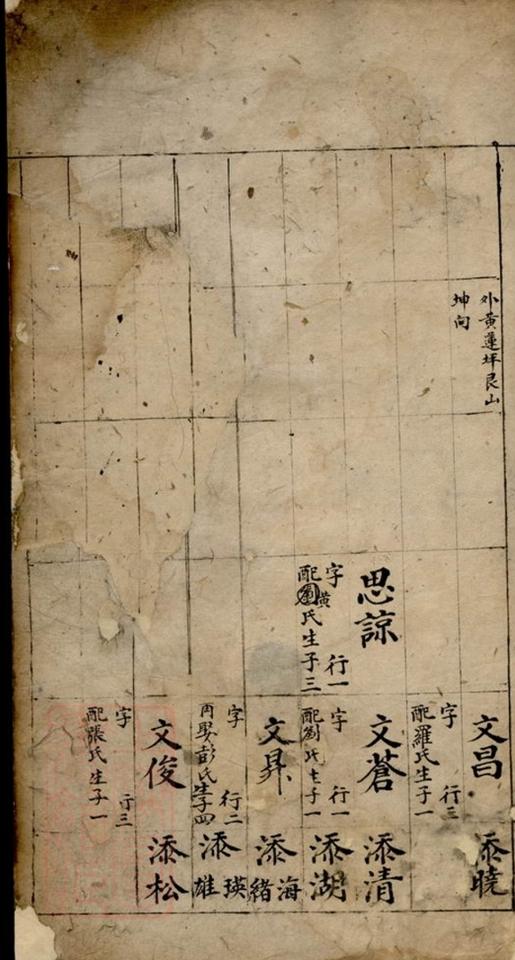 外黄蓮坪艮山
坤向
思諒
字 行一
配黄氏生子三
文昌
字 行三
配羅氏生子一
文蒼
字 行一
配劉氏生子一
文昇
字 行二
再娶彭氏生子四
文俊
字 行三
配張氏生子一
添曉
添清
添湖
添海緒
添瑛雄
添松